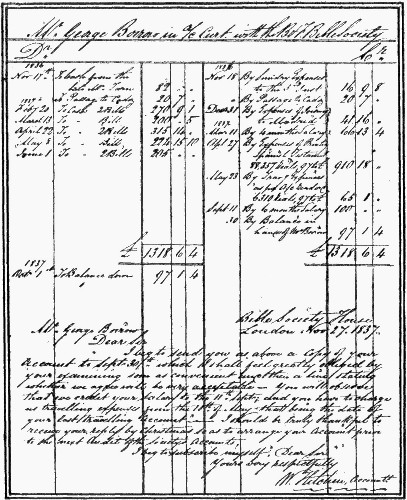 Mr. George Borrow in a/c Curt with the B & F Bible Society
Dr. Cr.
1836
Nov 17th To Cash from the
late Mr. Tarn 82 " "
" Passage to Cadiz 20 7 "
To Cash 2 Bills 270 9 1
March 13 To Bill 200 " 5
April 22 To 2 Bills 315 14 "
May 8 To Bill 224 15 10
June 1 To 2 Bills 205 " "
£ 1318 6 4
1837
1st To Balance down 97 1 4
1836
Nov 18 By Sundry Expenses
to the 3rd Inst 16 9 8
" By Passage to Cadiz 20 7 "
Decr 31 By Expenses
to Madrid 41 16 "
1837
Mar 11 By 4 months Salary 66 13 4
Apr 27 By Expenses of Printg
Spanish Testament
910 18 "
May 23 By Travg Expenses
as pr a/c
65 1 "
Sept 11 By 6 months Salary 100 " "
30 By Balance in
hands of Mr Borrow
97 1 4
£ 1318 6 4
Bible Society House
London Nov 27. 1837.
Mr. George Borrow
Dear Sir
I beg to send you as above a Copy of your
Account to Sept. 30th which I shall feel greatly obliged by
your examining soon as convenient and then a line stating
whether we agree will be very acceptable — You will observe
that we credit your Salary to the 11th Sept, and you have to charge
us travelling expenses from the 18th of May — that being the date of
your last travelling Account — I should be truly thankful to
receive your reply by Christmas so as to arrange your Account prior
to the next Audit of the Society's Accounts,
I beg to subscribe myself, Dear Sir
Yours very respectfully
W. Hitchin, Accountt